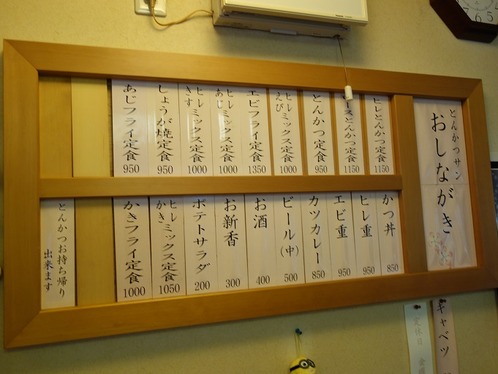 とんかつサン
おしながき
ヒレとんかつ定食 1150
ースとんかつ定食 1150
とんかつ定食 950
ヒレミックス定食 えび 1000
エビフライ定食 1350
ヒレミックス定食 あじ 1000
ヒレミックス定食 きす 1000
しょうが焼定食 950
あじフライ定食 950
かつ丼 850
ヒレ重 950
エビ重 950
カツカレー 850
ビール(中) 500
お酒 400
お新香 300
ポテトサラダ 200
ヒレミックス定食 かき 1050
かきフライ定食 1000
とんかつお持ち帰り
出来ます
キャベツ
定休日